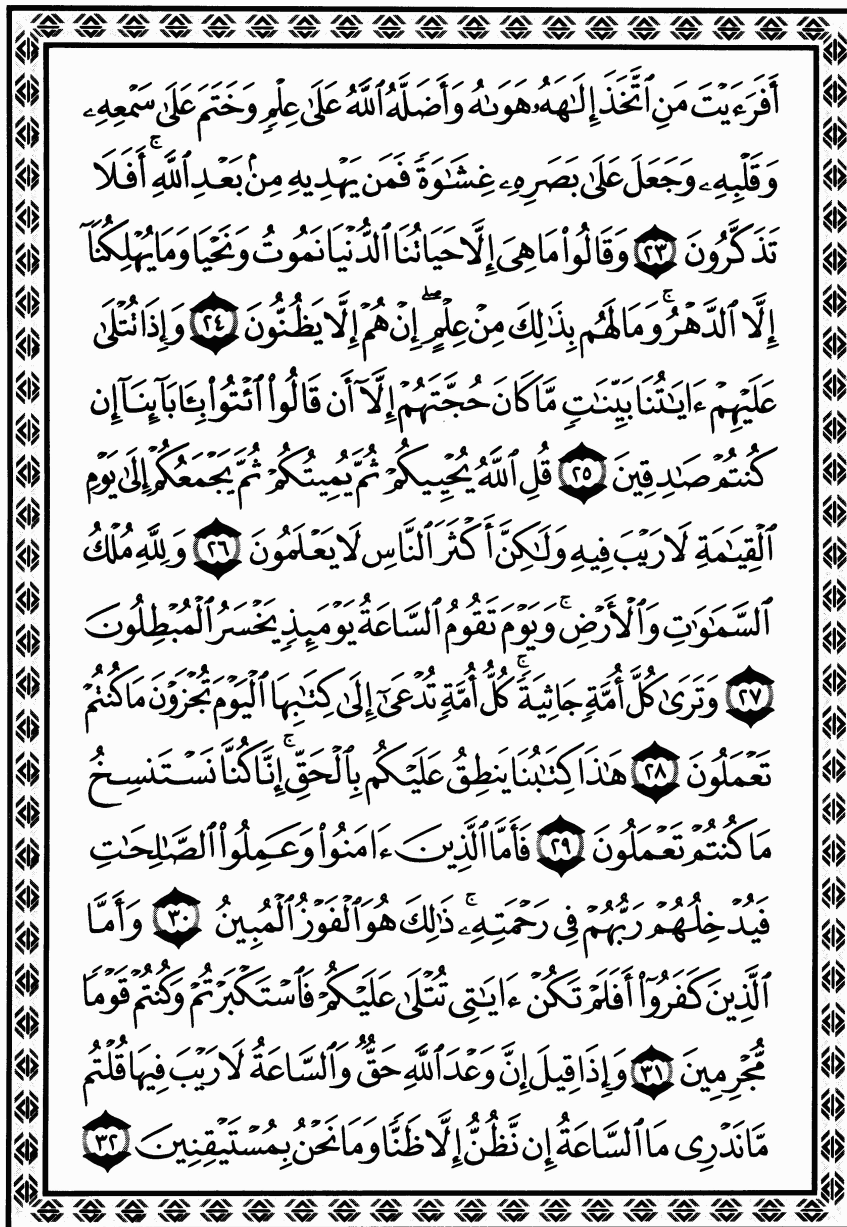 أَفَرَءَيْتَ مَنِ ٱتَّخَذَ إِلَٰهَهُۥ هَوَىٰهُ وَأَضَلَّهُ ٱللَّهُ عَلَىٰ عِلْمٍ وَخَتَمَ عَلَىٰ سَمْعِهِۦ
وَقَلْبِهِۦ وَجَعَلَ عَلَىٰ بَصَرِهِۦ غِشَٰوَةً فَمَن يَهْدِيهِ مِنۢ بَعْدِ ٱللَّهِ ۚ أَفَلَا
تَذَكَّرُونَ ٢٣ وَقَالُوا۟ مَا هِىَ إِلَّا حَيَاتُنَا ٱلدُّنْيَا نَمُوتُ وَنَحْيَا وَمَا يُهْلِكُنَآ
إِلَّا ٱلدَّهْرُ ۚ وَمَا لَهُم بِذَٰلِكَ مِنْ عِلْمٍ ۖ إِنْ هُمْ إِلَّا يَظُنُّونَ ٢٤ وَإِذَا تُتْلَىٰ
عَلَيْهِمْ ءَايَٰتُنَا بَيِّنَٰتٍ مَّا كَانَ حُجَّتَهُمْ إِلَّآ أَن قَالُوا۟ ٱئْتُوا۟ بِـَٔابَآئِنَآ إِن
كُنتُمْ صَٰدِقِينَ ٢٥ قُلِ ٱللَّهُ يُحْيِيكُمْ ثُمَّ يُمِيتُكُمْ ثُمَّ يَجْمَعُكُمْ إِلَىٰ يَوْمِ
ٱلْقِيَٰمَةِ لَا رَيْبَ فِيهِ وَلَٰكِنَّ أَكْثَرَ ٱلنَّاسِ لَا يَعْلَمُونَ ٢٦ وَلِلَّهِ مُلْكُ
ٱلسَّمَٰوَٰتِ وَٱلْأَرْضِ ۚ وَيَوْمَ تَقُومُ ٱلسَّاعَةُ يَوْمَئِذٍ يَخْسَرُ ٱلْمُبْطِلُونَ
٢٧ وَتَرَىٰ كُلَّ أُمَّةٍ جَاثِيَةً ۚ كُلُّ أُمَّةٍ تُدْعَىٰٓ إِلَىٰ كِتَٰبِهَا ٱلْيَوْمَ تُجْزَوْنَ مَا كُنتُمْ
تَعْمَلُونَ ٢٨ هَٰذَا كِتَٰبُنَا يَنطِقُ عَلَيْكُم بِٱلْحَقِّ ۚ إِنَّا كُنَّا نَسْتَنسِخُ
مَا كُنتُمْ تَعْمَلُونَ ٢٩ فَأَمَّا ٱلَّذِينَ ءَامَنُوا۟ وَعَمِلُوا۟ ٱلصَّٰلِحَٰتِ
فَيُدْخِلُهُمْ رَبُّهُمْ فِى رَحْمَتِهِۦ ۚ ذَٰلِكَ هُوَ ٱلْفَوْزُ ٱلْمُبِينُ ٣٠ وَأَمَّا
ٱلَّذِينَ كَفَرُوٓا۟ أَفَلَمْ تَكُنْ ءَايَٰتِى تُتْلَىٰ عَلَيْكُمْ فَٱسْتَكْبَرْتُمْ وَكُنتُمْ قَوْمًا
مُّجْرِمِينَ ٣١ وَإِذَا قِيلَ إِنَّ وَعْدَ ٱللَّهِ حَقٌّ وَٱلسَّاعَةُ لَا رَيْبَ فِيهَا قُلْتُم
مَّا نَدْرِى مَا ٱلسَّاعَةُ إِن نَّظُنُّ إِلَّا ظَنًّا وَمَا نَحْنُ بِمُسْتَيْقِنِينَ ٣٢